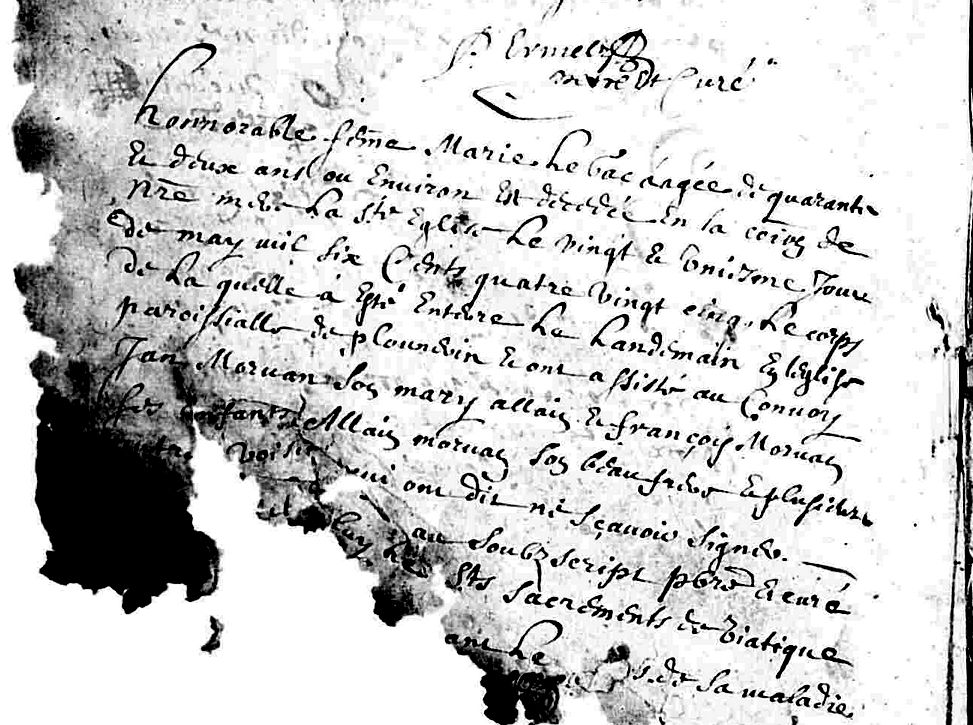 honnorable feme Marie Le bac aagée de quarante
Et deux ans ou Environ Est decedée En la coing de
nre mere La ste Eglise Le vingt Et unizme Jour
de may mil six Cents quatre vingt cinq, Le corps
de La quelle á Esté Enterre Le Landemain En leglise
paroissialle de plounevin Et ont assisté au Convoy
Jan Morvan Son mary allain Et françois Morvan
ses enfants Allain morvan Son beau frere Et plusieurs
ont dit ne sçavoir signer.
au soubzscript pbre Et curé
luy les Sts sacrements de Viatique
de sa maladie.